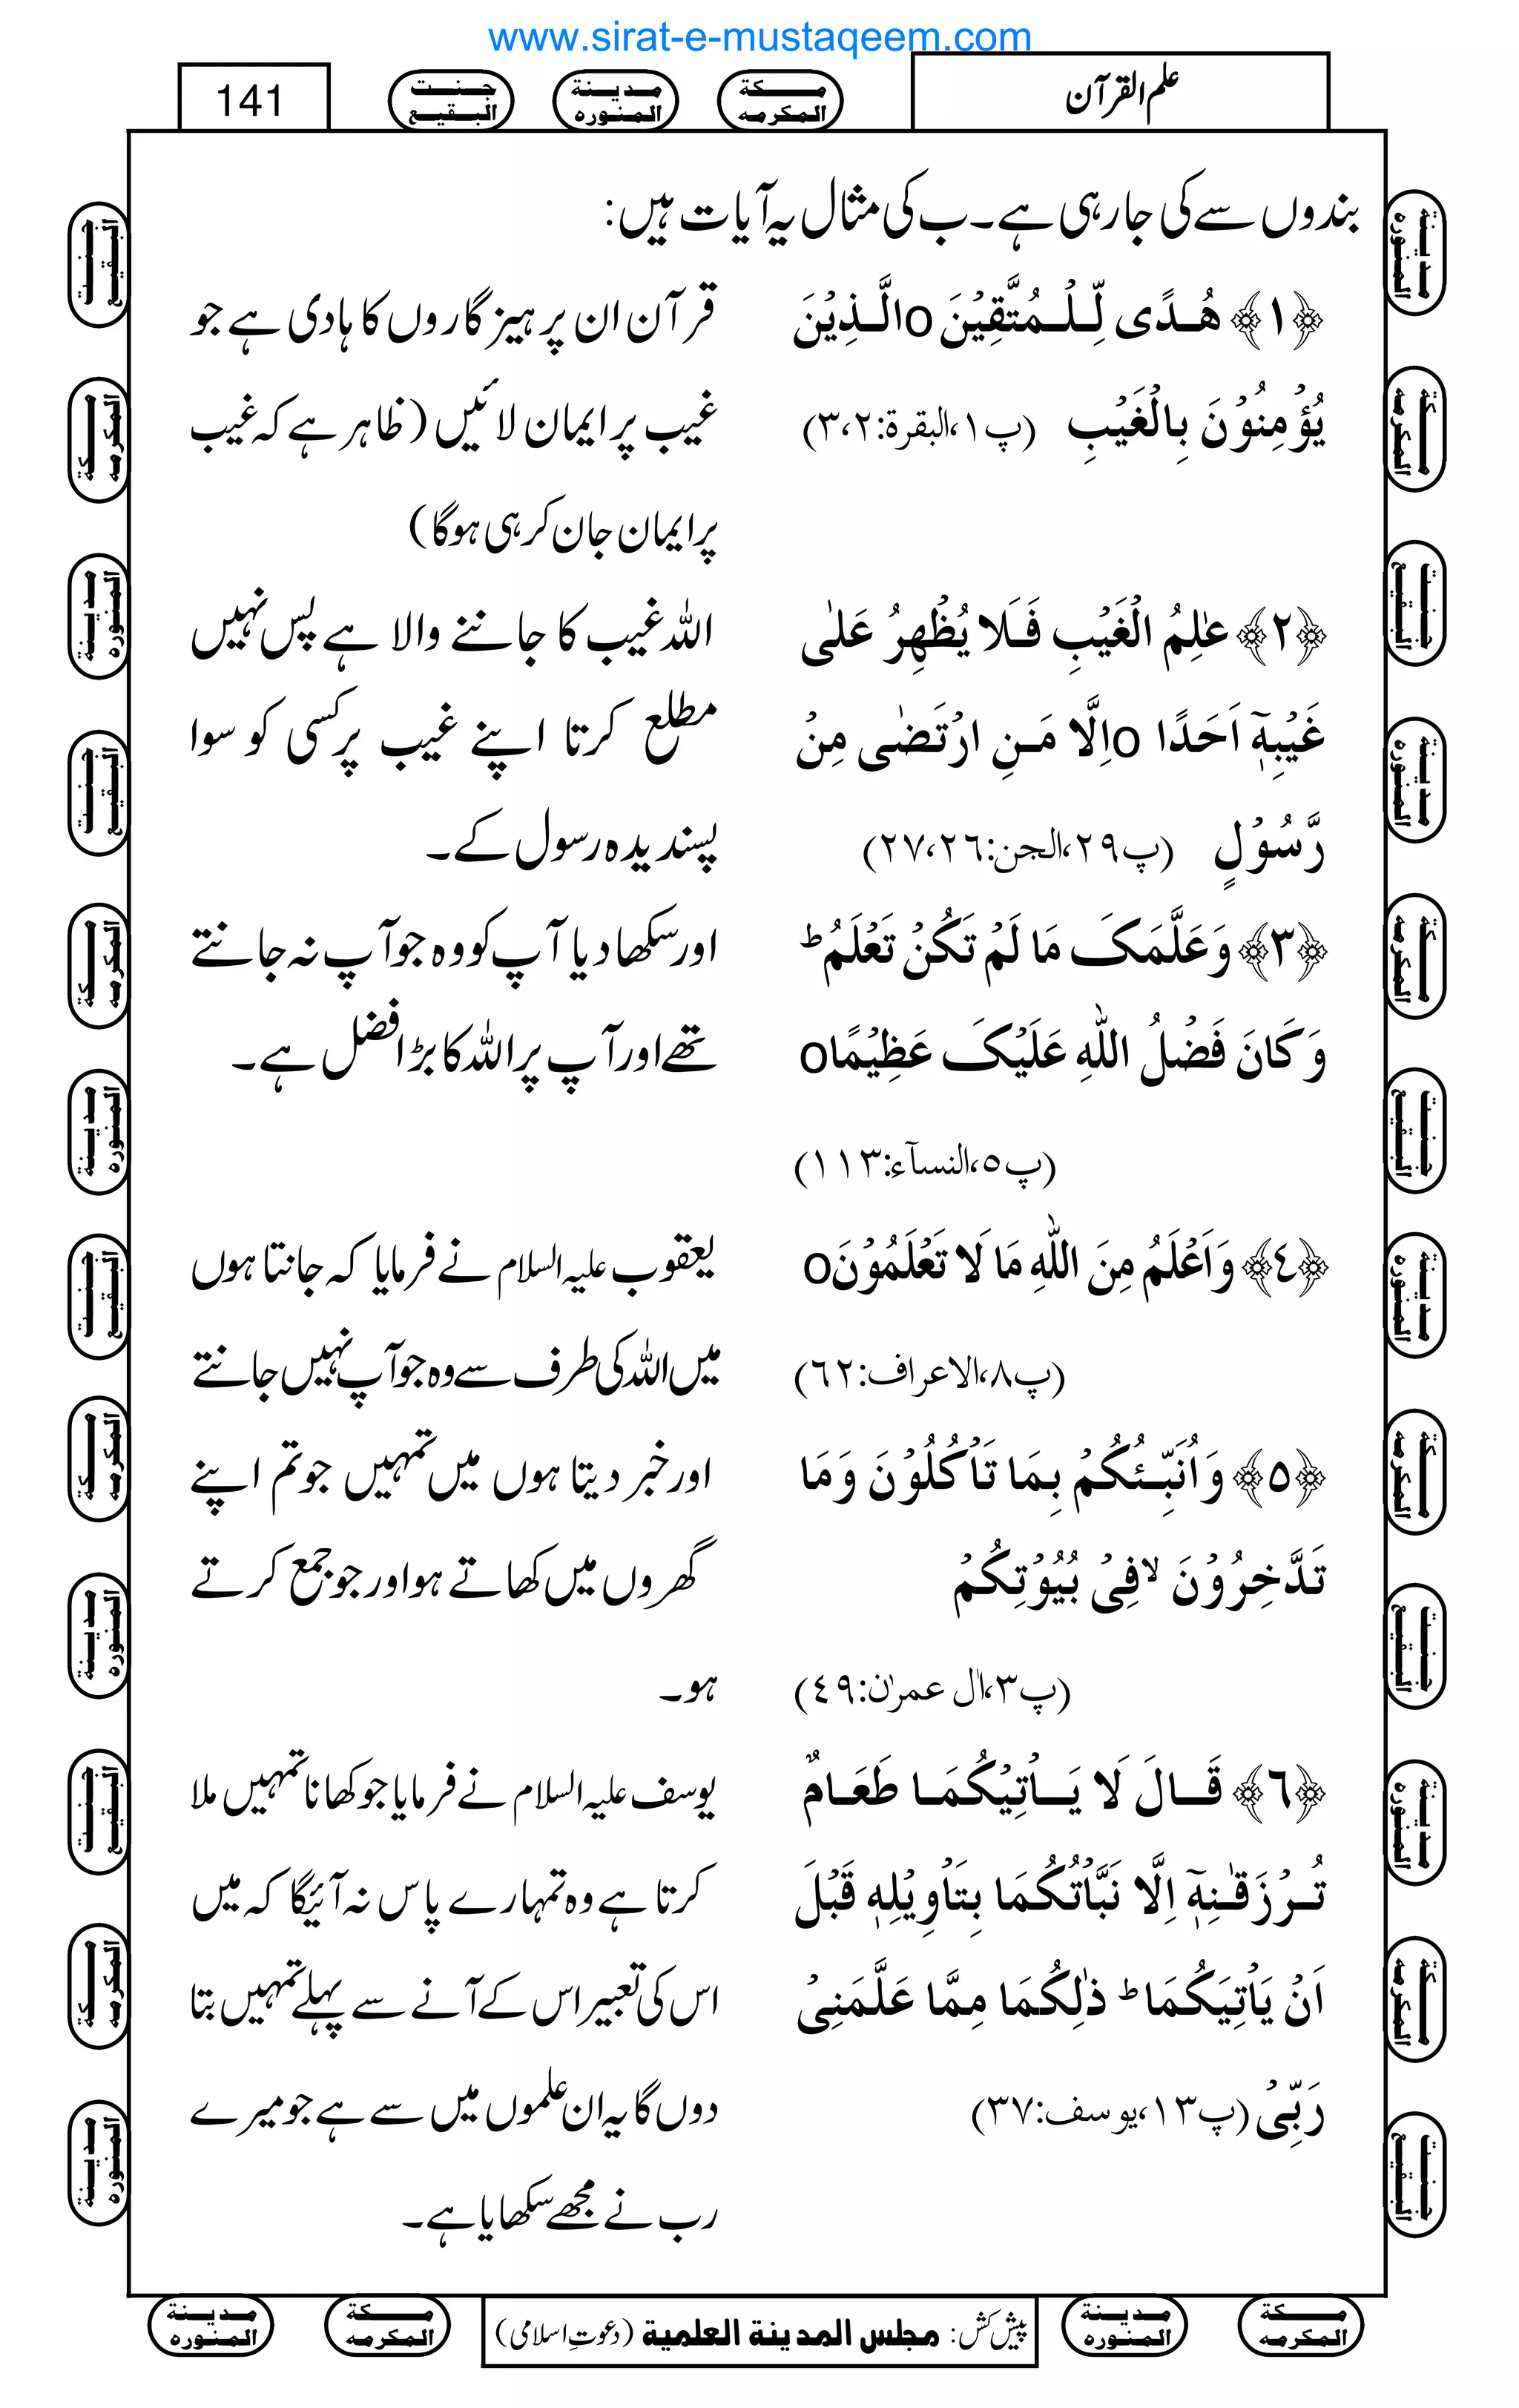 www.sirat-e-mustaqeem.com
علم القرآن
مـكة المكرمه
مـديـنة المنوره
جـنـت البقيع
141
بندوں سے کی جا رہی ہے۔ ب کی مثال یہ آیات ہیں:
﴿١﴾ هُدًى لِّلْمُتَّقِيْنَo الَّذِيْنَ
يُؤْمِنُوْنَ بِالْغَيْبِ (پ١،البقرة:٣،٢)
قرآن ان پرہیز گاروں کا ہادی ہے جو
غیب پر ایمان لائیں (ظاہر ہے کہ غیب
پر ایمان جان کر ہی ہوگا)
﴿٢﴾ عٰلِمُ الْغَيْبِ فَلَا يُظْهِرُ عَلٰى
غَيْبِهٖٓ اَحَدًا oاِلَّا مَنِ ارْتَضٰى مِنْ
رَّسُوْلٍ (پ٢٩،الجن:٢٧،٢٦)
اللہ غیب کا جاننے والا ہے پس نہیں
مطلع کرتا اپنے غیب پر کسی کو سوا
پسندیدہ رسول کے۔
﴿٣﴾ وَعَلَّمَکَ مَا لَمْ تَكُنْ تَعْلَمُ ؕ
وَكَانَ فَضْلُ اللّٰهِ عَلَيْکَ عَظِيْمًاo
(پ٥،النسآء:١١٣)
اور سکھا دیا آپ کو وہ جو آپ نہ جانتے
تھے اور آپ پر اللہ کا بڑا فضل ہے۔
﴿٤﴾ وَاَعْلَمُ مِنَ اللّٰهِ مَا لَا تَعْلَمُوْنَo
(پ٨،الاعراف:٦٢)
یعقوب علیہ السلام نے فرمایا کہ جانتا ہوں
میں اللہ کی طرف سے وہ جو آپ نہیں جانتے
﴿٥﴾ وَاُنَبِّئُكُمْ بِمَا تَاْكُلُوْنَ وَمَا
تَدَّخِرُوْنَ ۙ فِیْ بُيُوْتِكُمْ
(پ٣،اٰل عمرٰن:٤٩)
اور خبر دیتا ہوں میں تمہیں جو تم اپنے
گھروں میں کھاتے ہو اور جو جمع کرتے
ہو۔
﴿٦﴾ قَالَ لَا يَاْتِيْكُمَا طَعَامٌ
تُرْزَقٰنِهٖٓ اِلَّا نَبَّاْتُكُمَا بِتَاْوِيْلِهٖ قَبْلَ
اَنْ يَاْتِيَكُمَا ؕ ذٰلِكُمَا مِمَّا عَلَّمَنِیْ
رَبِّیْ (پ١٣،يوسف:٣٧)
یوسف علیہ السلام نے فرمایا جو کھانا تمہیں ملا
کرتا ہے وہ تمہارے پاس نہ آئیگا کہ میں
اس کی تعبیر اس کے آنے سے پہلے تمہیں بتا
دوں گا یہ ان علموں میں سے ہے جو میرے
رب نے مجھے سکھایا ہے۔
پیش کش: مجلس المدینة العلمیة (دعوتِ اسلامی)